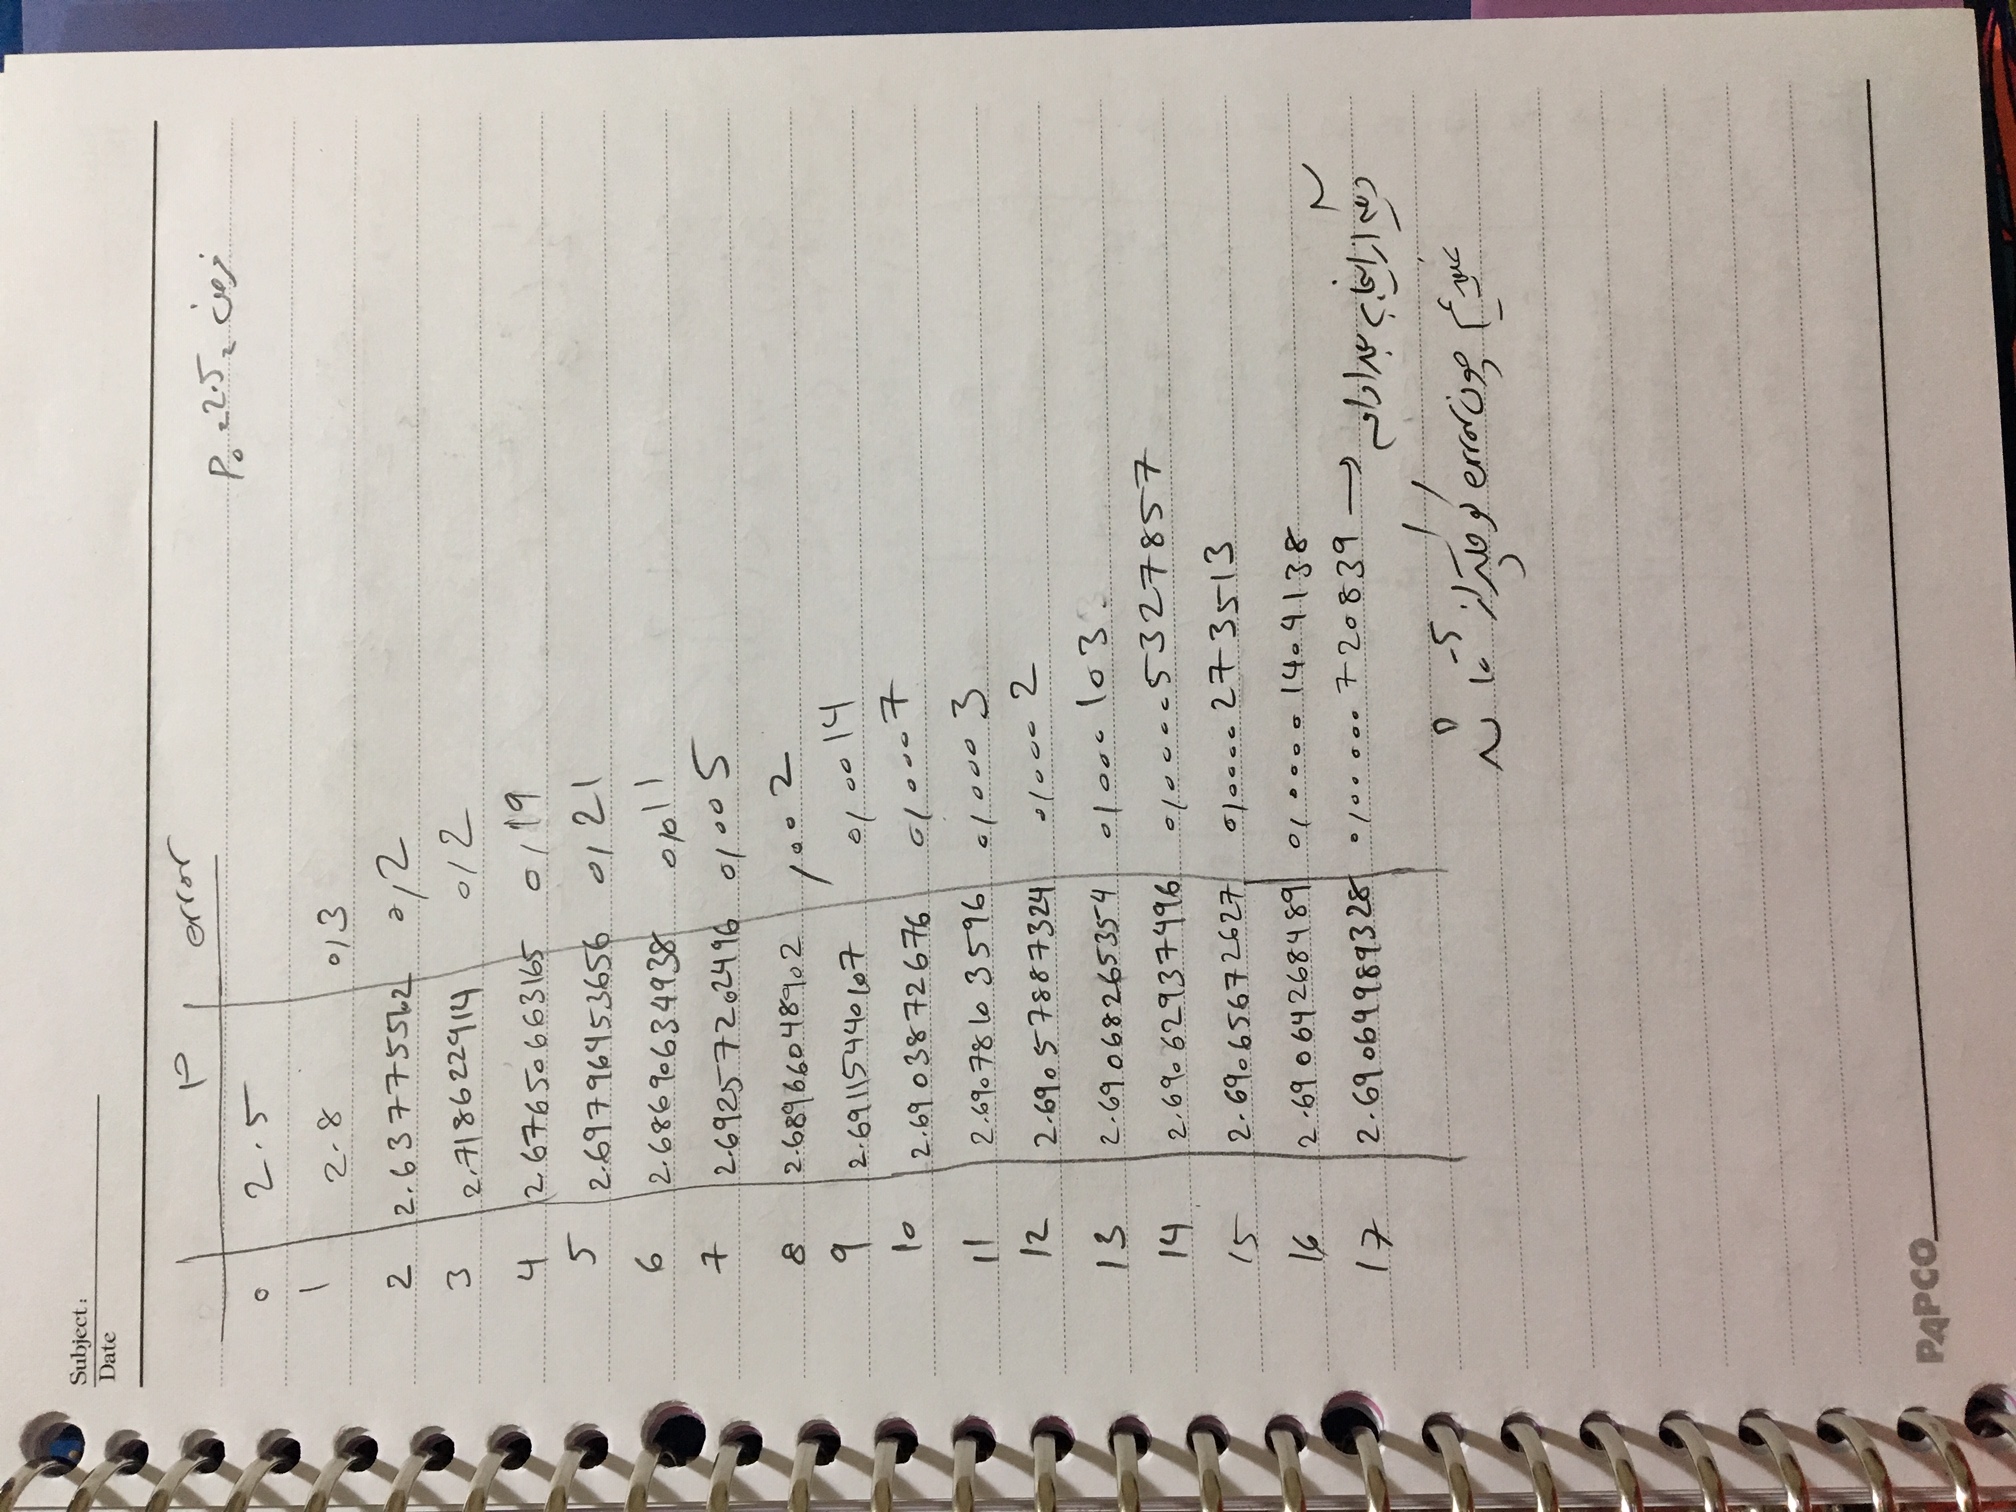 Subject:
Date
P error
فرض = P₀ = 2.5
0 2.5
1 2.8 0/3
2 2.637755102 0/2
3 2.718622914 0/2
4 2.67650663165 0/19
5 2.69796453656 0/21
6 2.68690634938 0/011
7 2.69257262496 0/005
8 2.68966048902 /002
9 2.69115440107 0/0014
10 2.6903872676 0/0007
11 2.69078103596 0/0003
12 2.69057887324 0/0002
13 2.69068265354 0/000103
14 2.69062937496 0/00005327857
15 2.69065672627 0/0000273513
16 2.69064268489 0/00001404138
17 2.69064989328 0/00000720839 → دیگه از اینجا به بعد ادامه
نمیدیم چون error کوچکتر از 10⁻⁵ شد
PAPCO